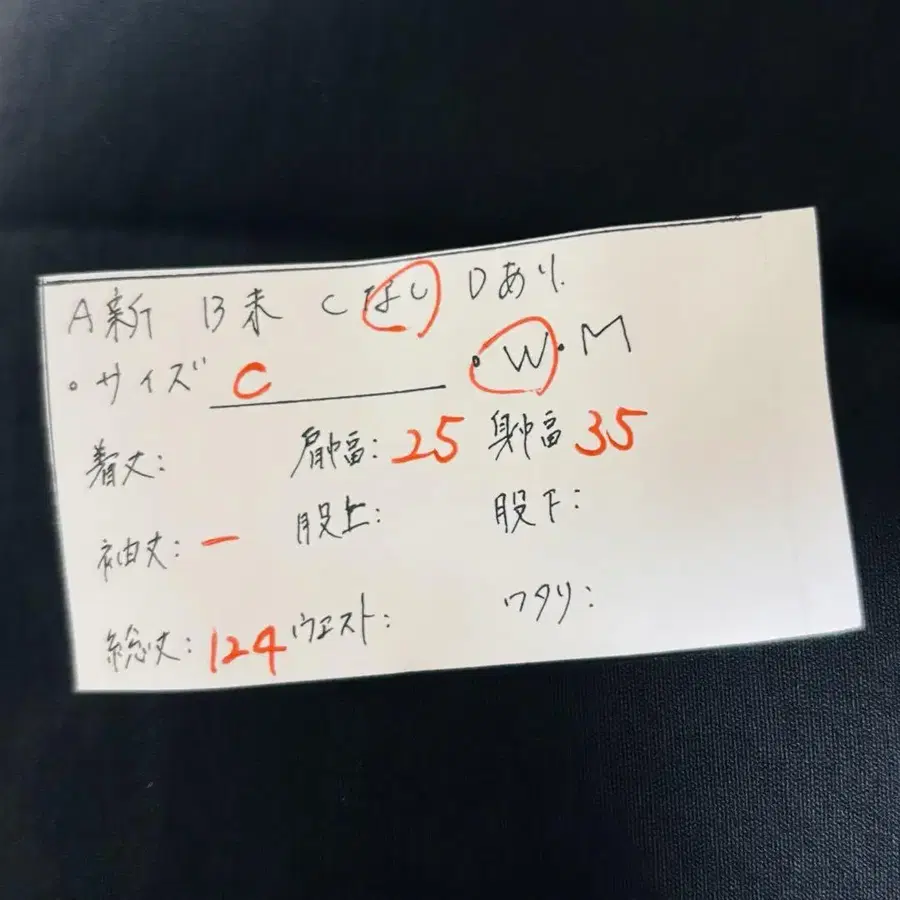 A新 B未 Cなし Dあり
・サイズ C ・W・M
着丈: 肩幅:25 身幅35
袖丈:ー 股上: 股下:
総丈:124 ウエスト: ワタリ: